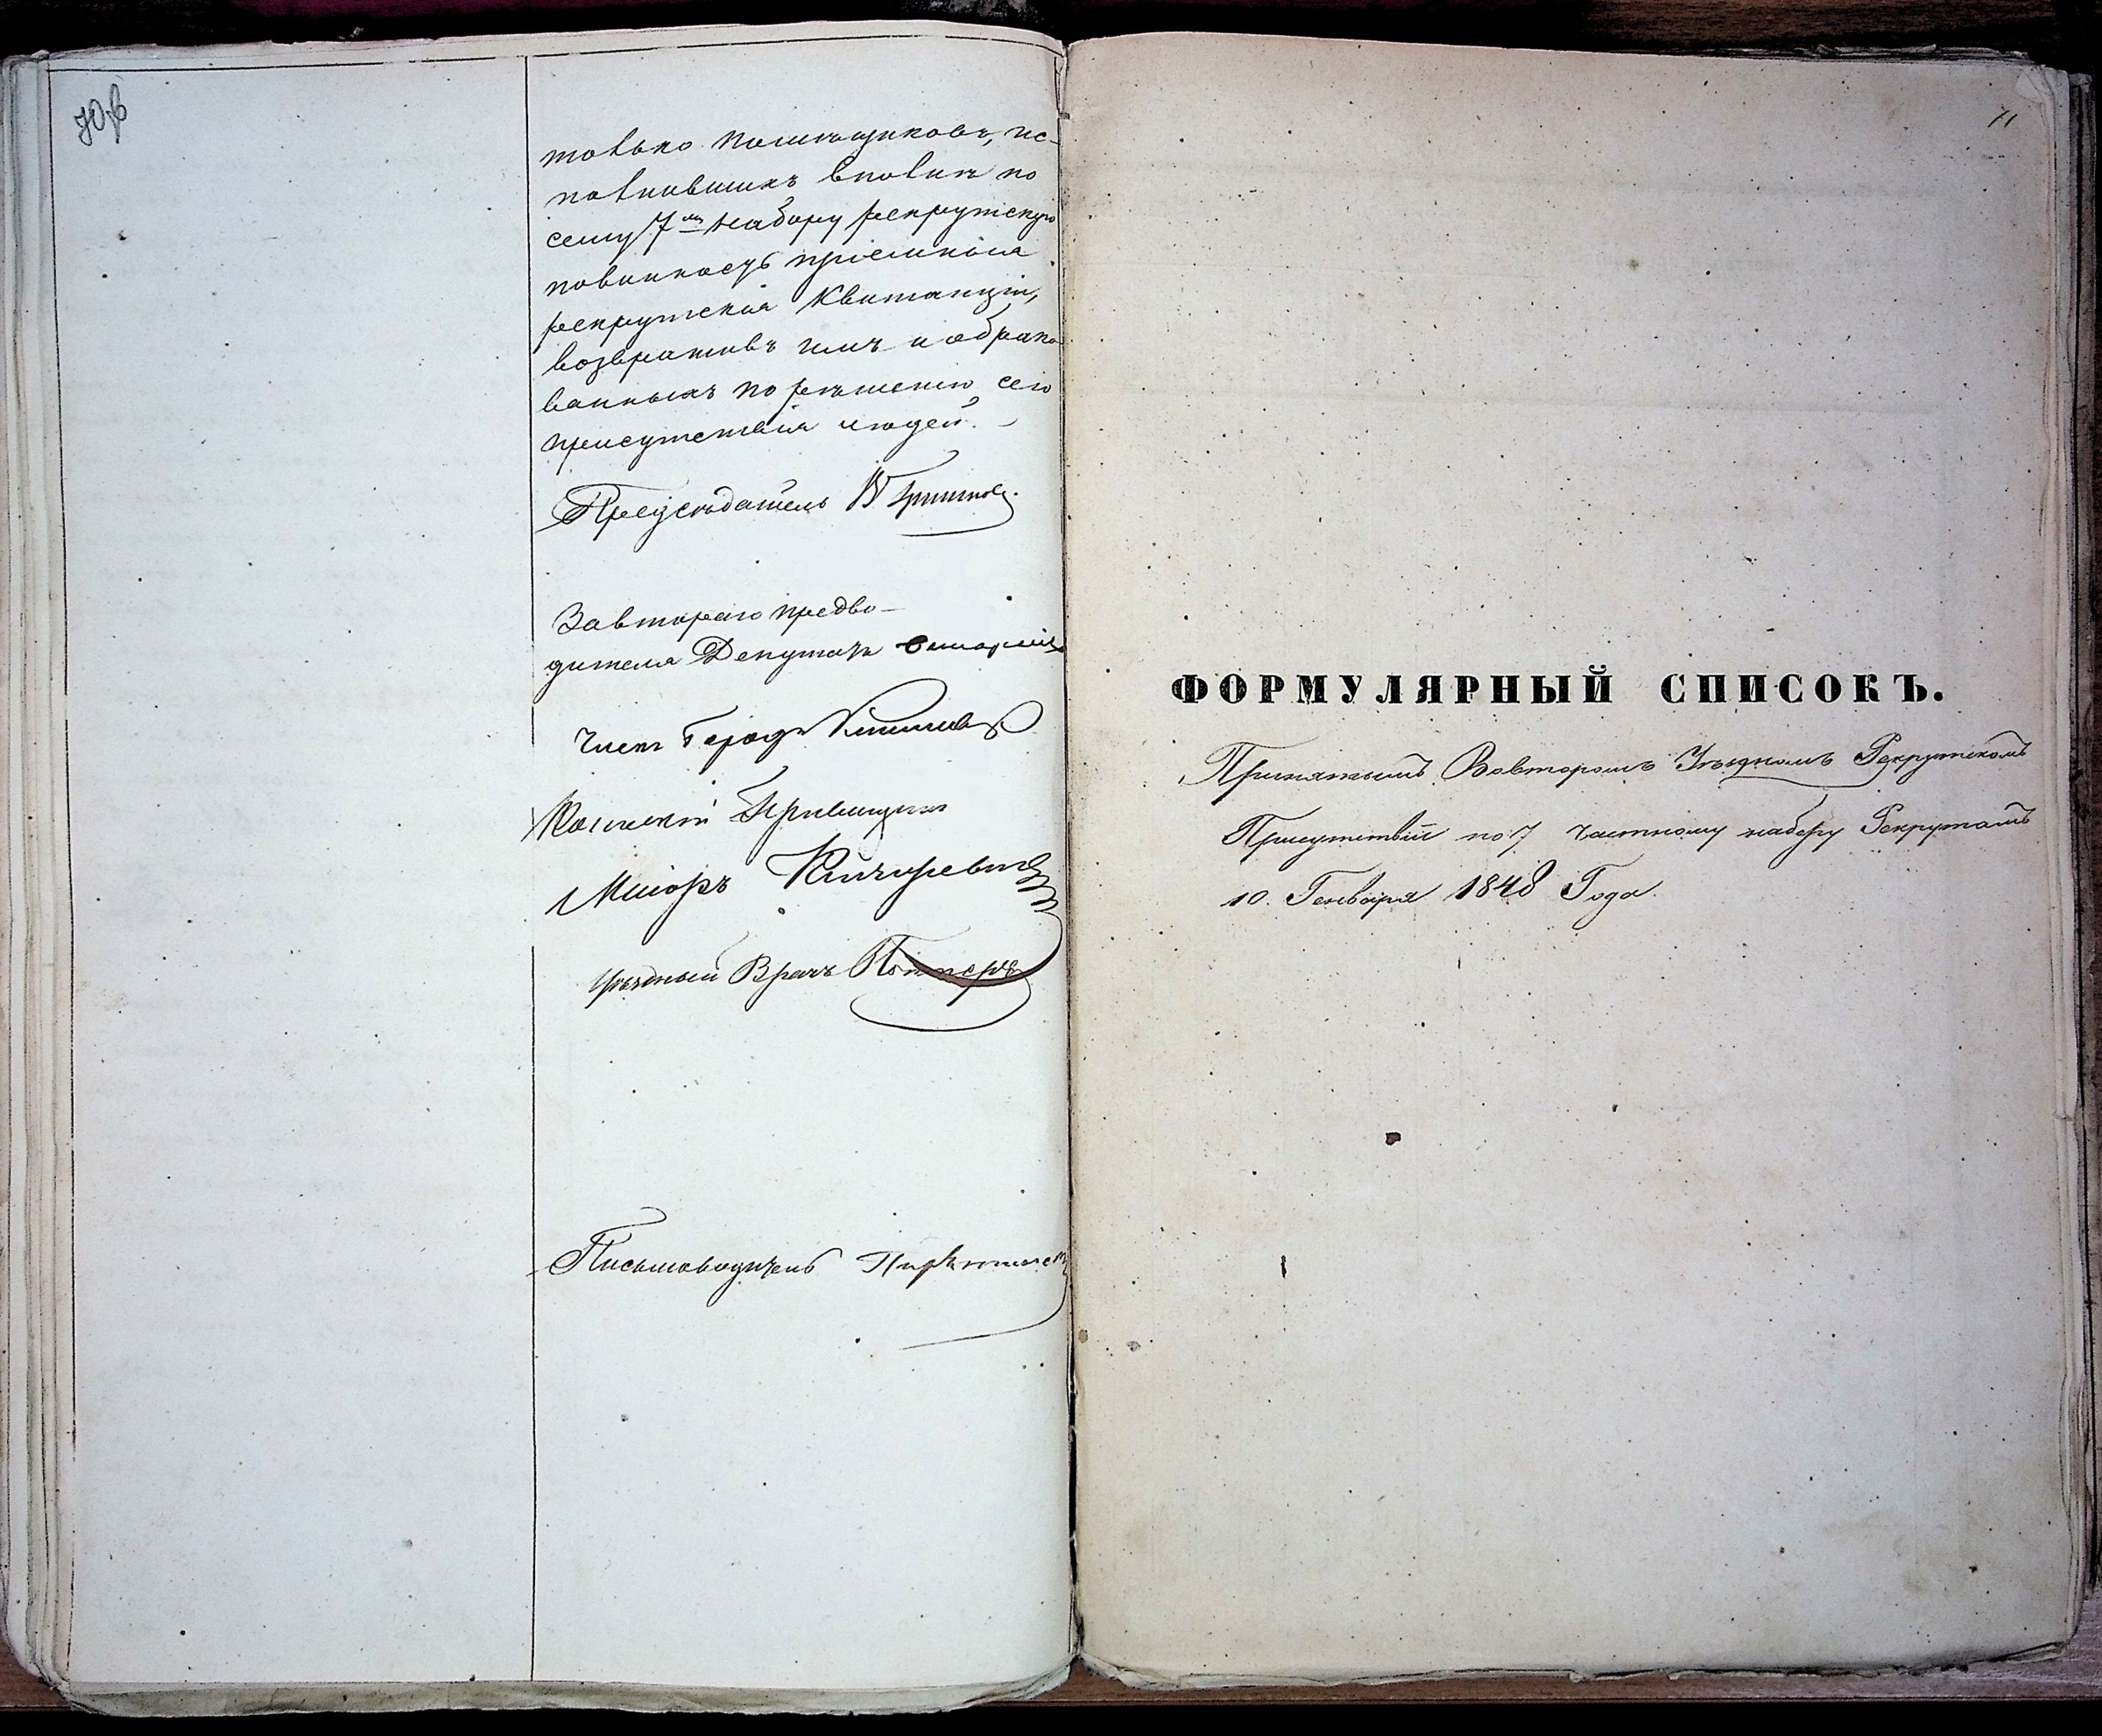 70 в
только помѣщиковъ, ис-
полнившихъ вполнѣ по
сему 7му набору рекрутскую
повинность пріемныя
рекрутскія квитанціи,
возвративъ имъ и обрако
ванныхъ по рѣшенію сего
присутствія людей. –
Предсѣдатель
За втораго предво-
дителя Депутатъ
Членъ
Маіоръ
Уѣздный Врачъ
Письмоводитель
71
ФОРМУЛЯРНЫЙ СПИСОКЪ.
Принятымъ Вовторомъ Уѣздномъ Рекрутскомъ
Присутствіи по 7 частному набору Рекрутамъ
10. Генваря 1848 Года.